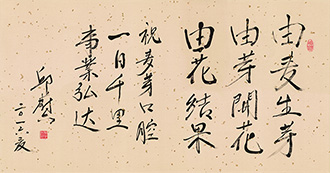 由麦生芽
由芽開花
由花结果
祝麦芽口腔
一日千里
事業弘达
邱慰
二〇一六.夏